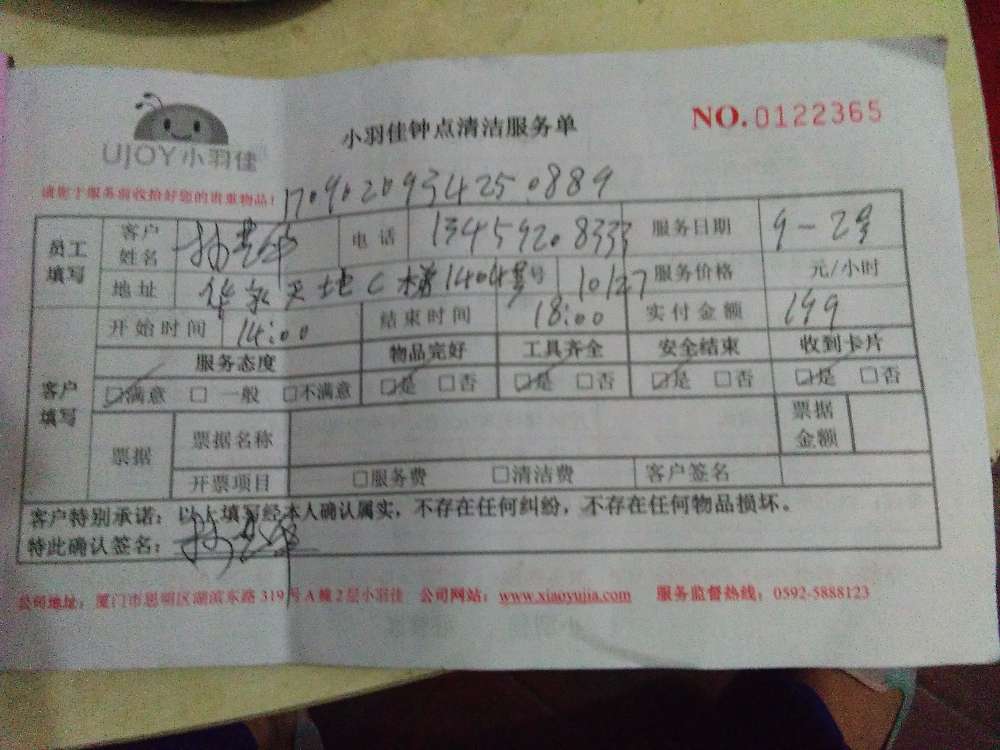 UJOY小羽佳
小羽佳钟点清洁服务单
NO.0122365
请您于服务前收拾好您的贵重物品!
1709020934250889
员工填写 客户姓名 电话 13459208333 服务日期 9-2号
地址 天地C梯1404号 10/27 服务价格 元/小时
客户填写 开始时间 14:00 结束时间 18:00 实付金额 199
服务态度 物品完好 工具齐全 安全结束 收到卡片
☑满意 □一般 □不满意 ☑是 □否 ☑是 □否 ☑是 □否 ☑是 □否
票据 票据名称 票据金额
开票项目 □服务费 □清洁费 客户签名
客户特别承诺:以上填写经本人确认属实,不存在任何纠纷,不存在任何物品损坏。
特此确认签名:
公司地址:厦门市思明区湖滨东路319号A幢2层小羽佳 公司网站:www.xiaoyujia.com 服务监督热线:0592-5888123